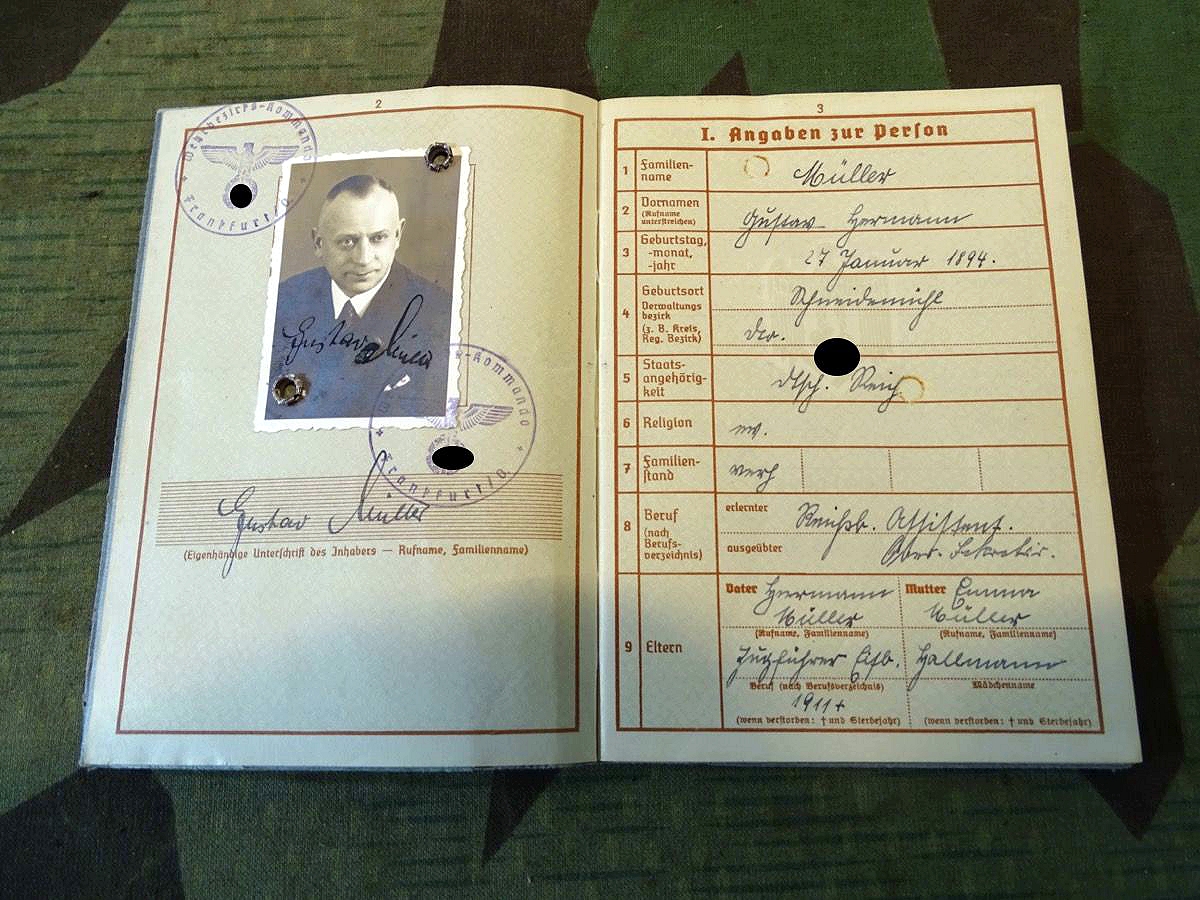 2
Wehrbezirks-Kommando
Frankfurt/O.
Gustav Müller
Kommando
Frankfurt/O.
Gustav Müller
(Eigenhändige Unterschrift des Inhabers — Rufname, Familienname)
3
I. Angaben zur Person
1 Familien-
name
Müller
2 Vornamen
(Rufname
unterstreichen)
Gustav Hermann
3 Geburtstag,
-monat,
-jahr
27 Januar 1894.
4 Geburtsort
Verwaltungs
bezirk
(z. B. Kreis,
Reg. Bezirk)
Schneidemühl
dto.
5 Staats-
angehörig-
keit
dtsch. Reich
6 Religion
ev.
7 Familien-
stand
verh
8 Beruf
(nach
Berufs-
verzeichnis)
erlernter
Reichsb. Assistent.
ausgeübter
Sekretär.
9 Eltern
Vater Hermann
Müller
(Rufname, Familienname)
Zugführer Eisb.
Beruf (nach Berufsverzeichnis)
1911 +
(wenn verstorben: † und Sterbejahr)
Mutter Emma
Müller
(Rufname, Familienname)
Hallmann
Mädchenname
(wenn verstorben: † und Sterbejahr)